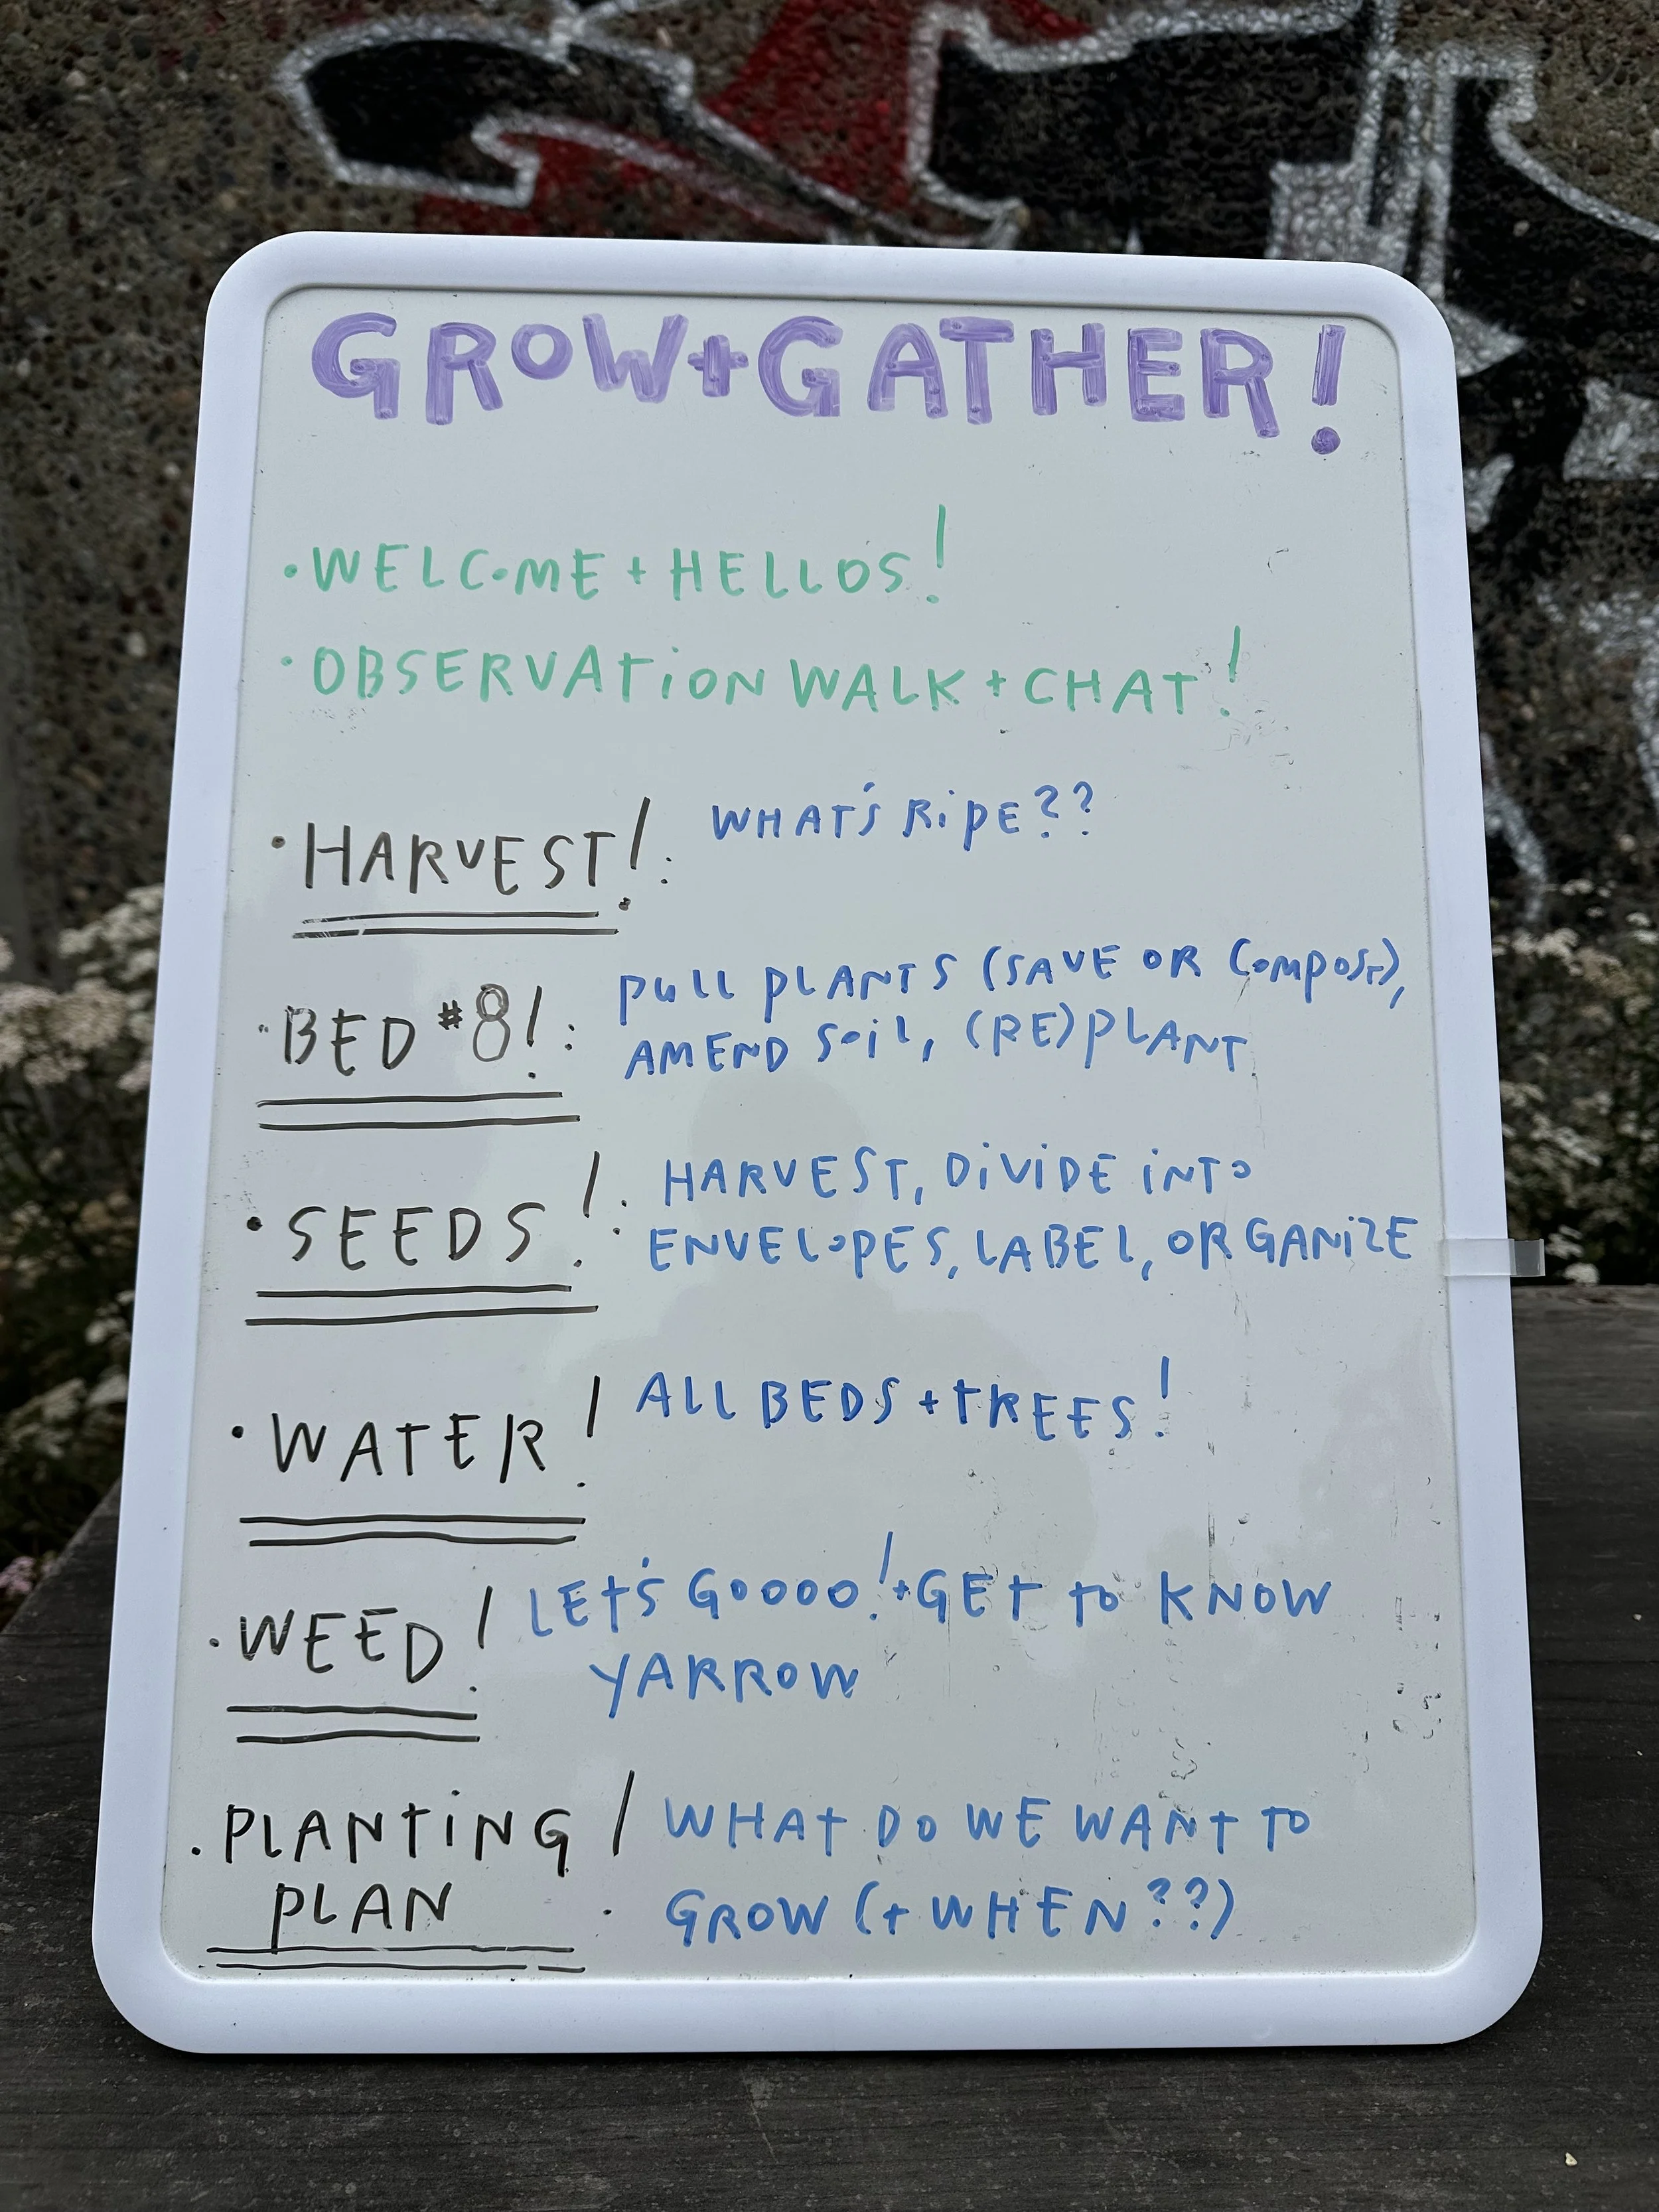 GROW+GATHER!
·WELCOME+HELLOS!
·OBSERVATION WALK+CHAT!
·HARVEST!: WHAT'S RIPE??
·BED #8!: PULL PLANTS (SAVE OR COMPOST),
AMEND SOIL, (RE)PLANT
·SEEDS!: HARVEST, DIVIDE INTO
ENVELOPES, LABEL, ORGANIZE
·WATER! ALL BEDS+TREES!
·WEED! LET'S GOOOO!+GET TO KNOW
YARROW
·PLANTING PLAN! WHAT DO WE WANT TO
GROW (+WHEN??)